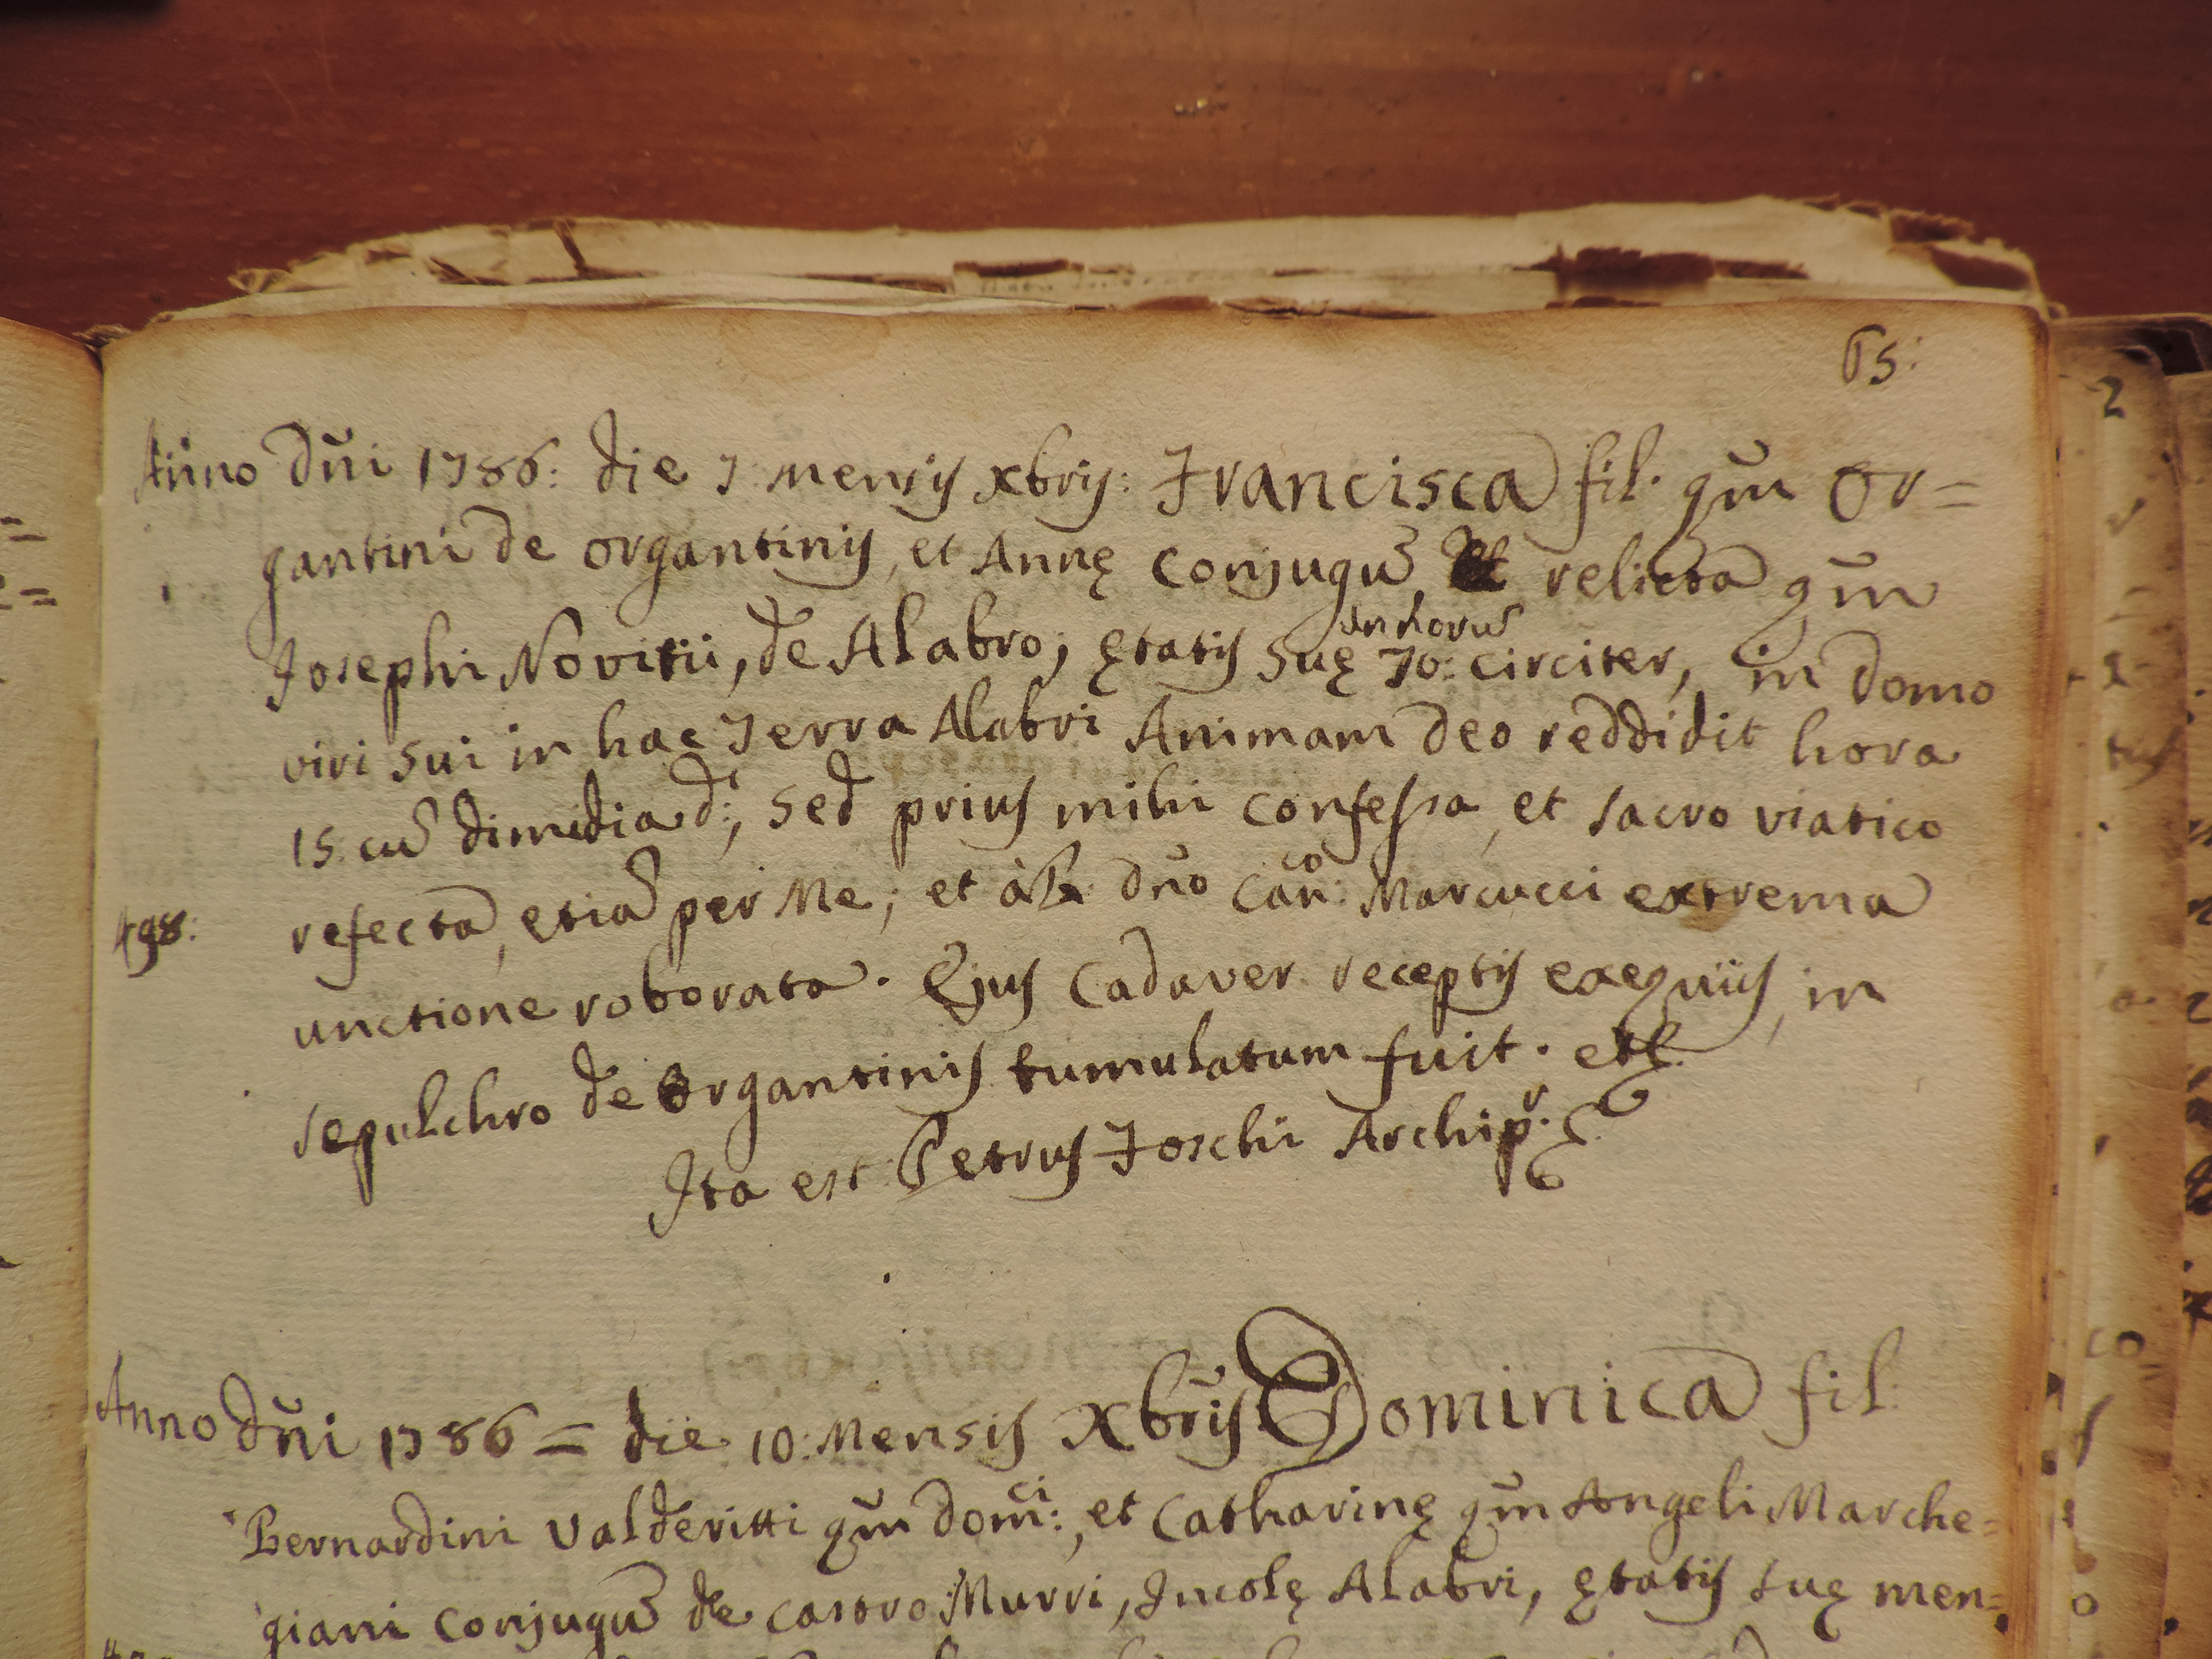 65:
Anno Dñi 1786: die 7 mensis Xbris: Francisca fil. qm̃ Or=
gantini de Organtinis, et Annę Conjugū, relicta qm̃
annorū
Josephi Novitii, de Alabro; ętatis suę 70: circiter, in domo
viri sui in hac Terra Alabri Animam Deo reddidit hora
15. cū dimidia d:, sed prius mihi confessa, et sacro viatico
refecta, etiā per Me; et à Dño Cañco: Marcucci extrema
498:
unctione roborata. Ejus Cadaver receptis exequiis, in
sepulchro de Organtinis tumulatum fuit. etc.
Ita est Petrus Foschi Archipr.
Anno Dñi 1786 = die 10: Mensis Xbris Dominica fil.
Bernardini Valderitti qm̃ Domci:, et Catharinę qm̃ Angeli Marche=
giani Conjugū de Castro Murri, Incolę Alabri, ętatis suę men=